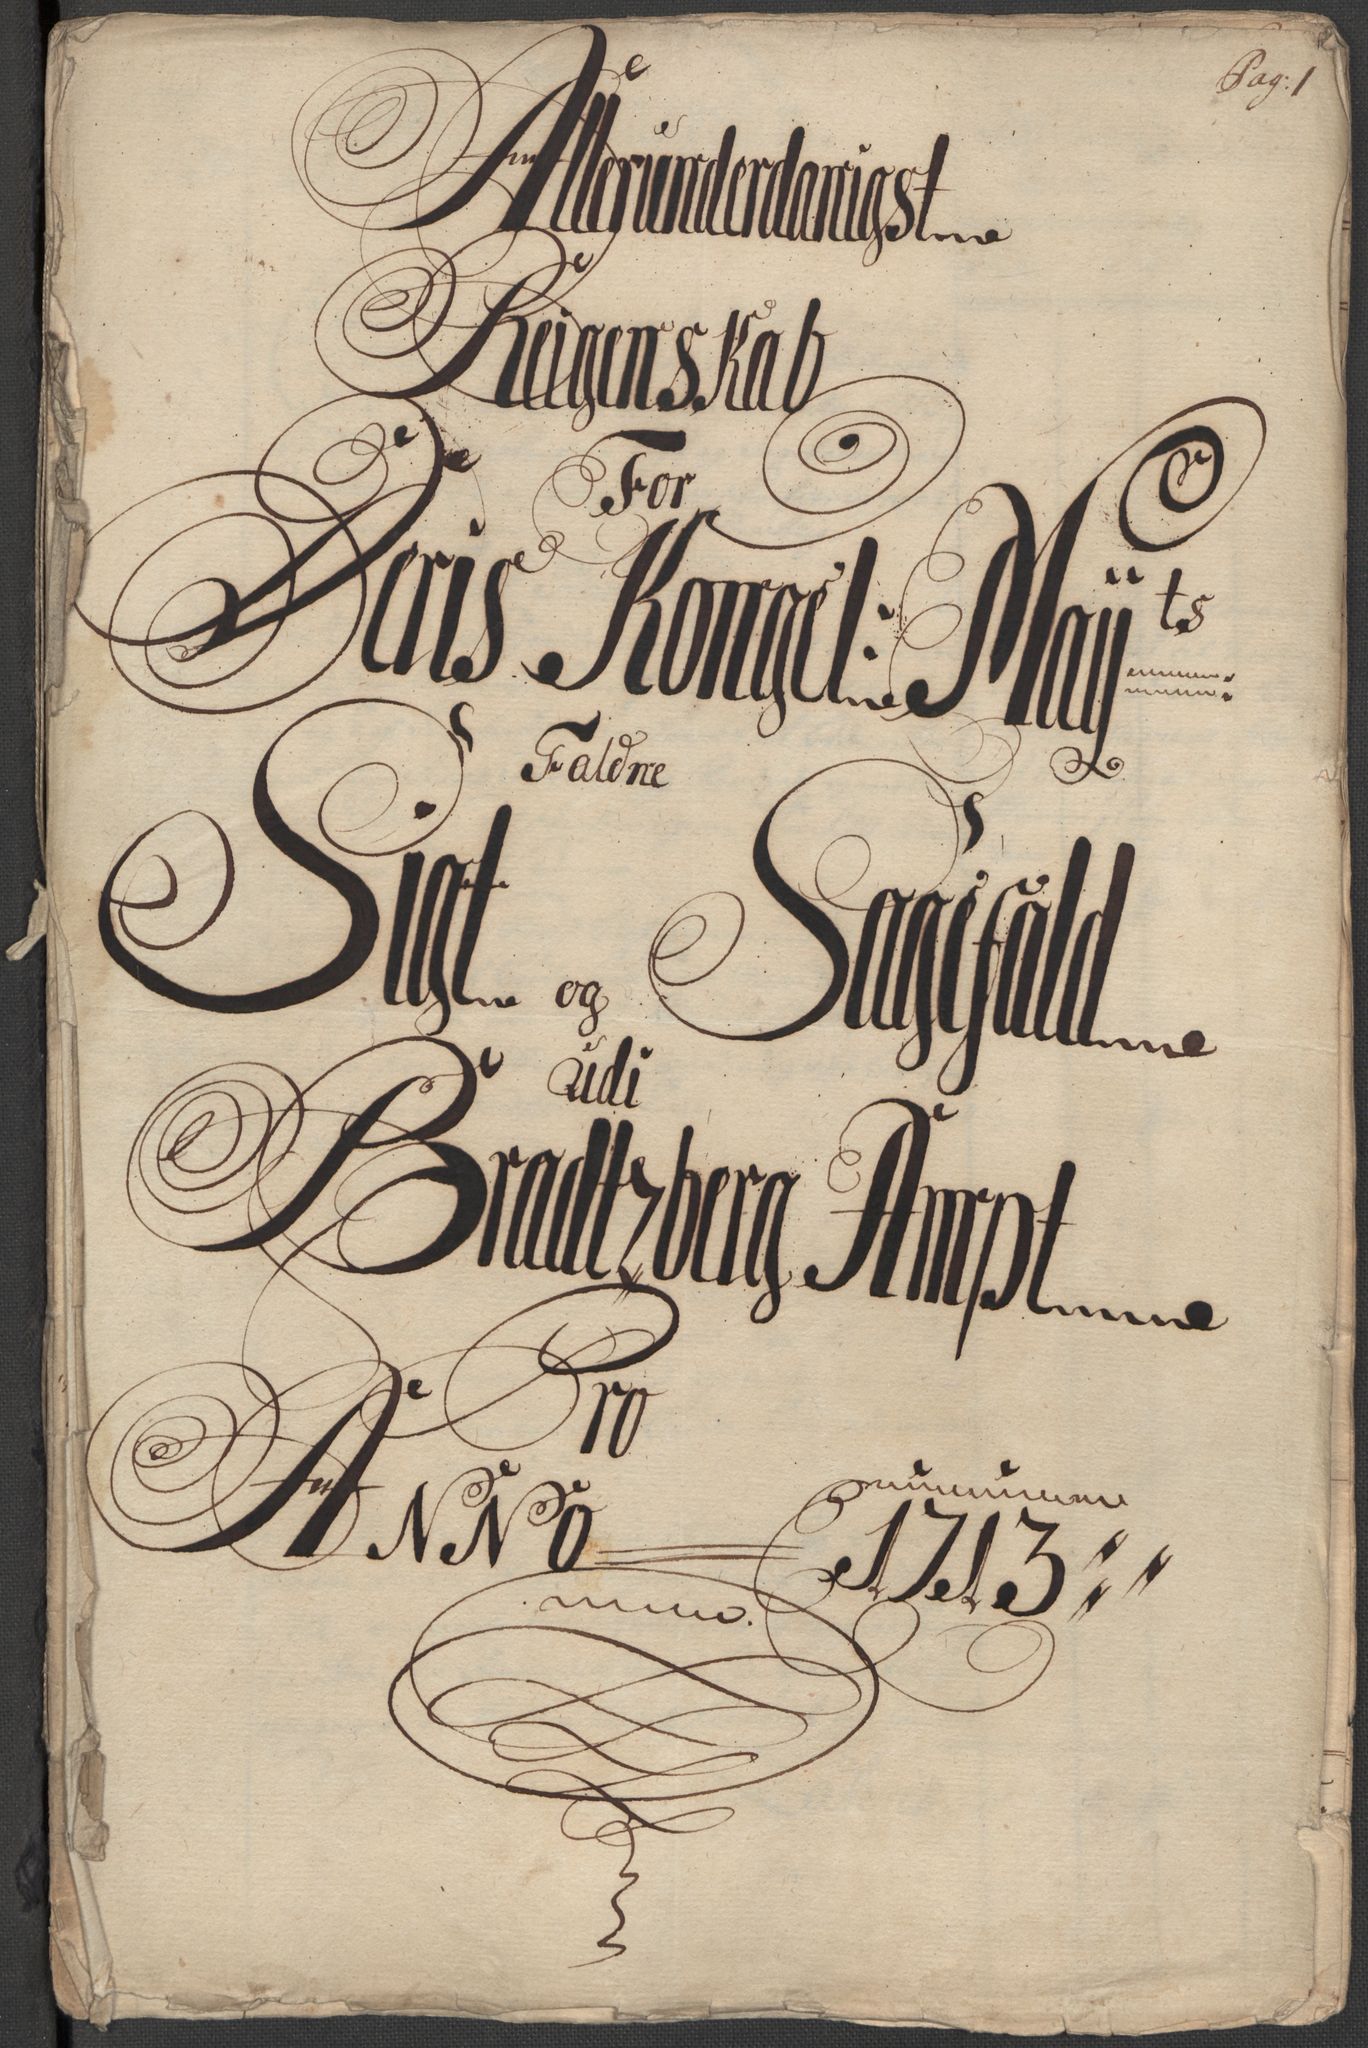 Pag: 1
Allerunderdanigst
Reigenskab
For
Deris Kongel: Mayts
Faldne
Sigt og Sagefald
udi
Bradtzberg Ampt
Pro
ANNO 1713